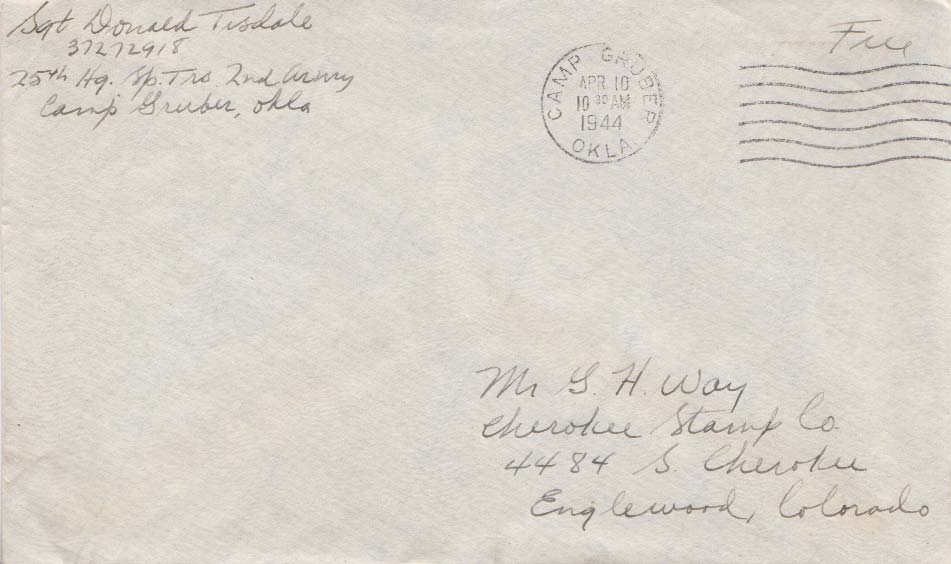 Sgt Donald Tisdale
37272918
25th Hq. Sp. Trs 2nd Army
Camp Gruber, Okla
CAMP GRUBER
APR 10
10 30 AM
1944
OKLA.
Free
Mr G. H. Way
Cherokee Stamp Co
4484 S. Cherokee
Englewood, Colorado